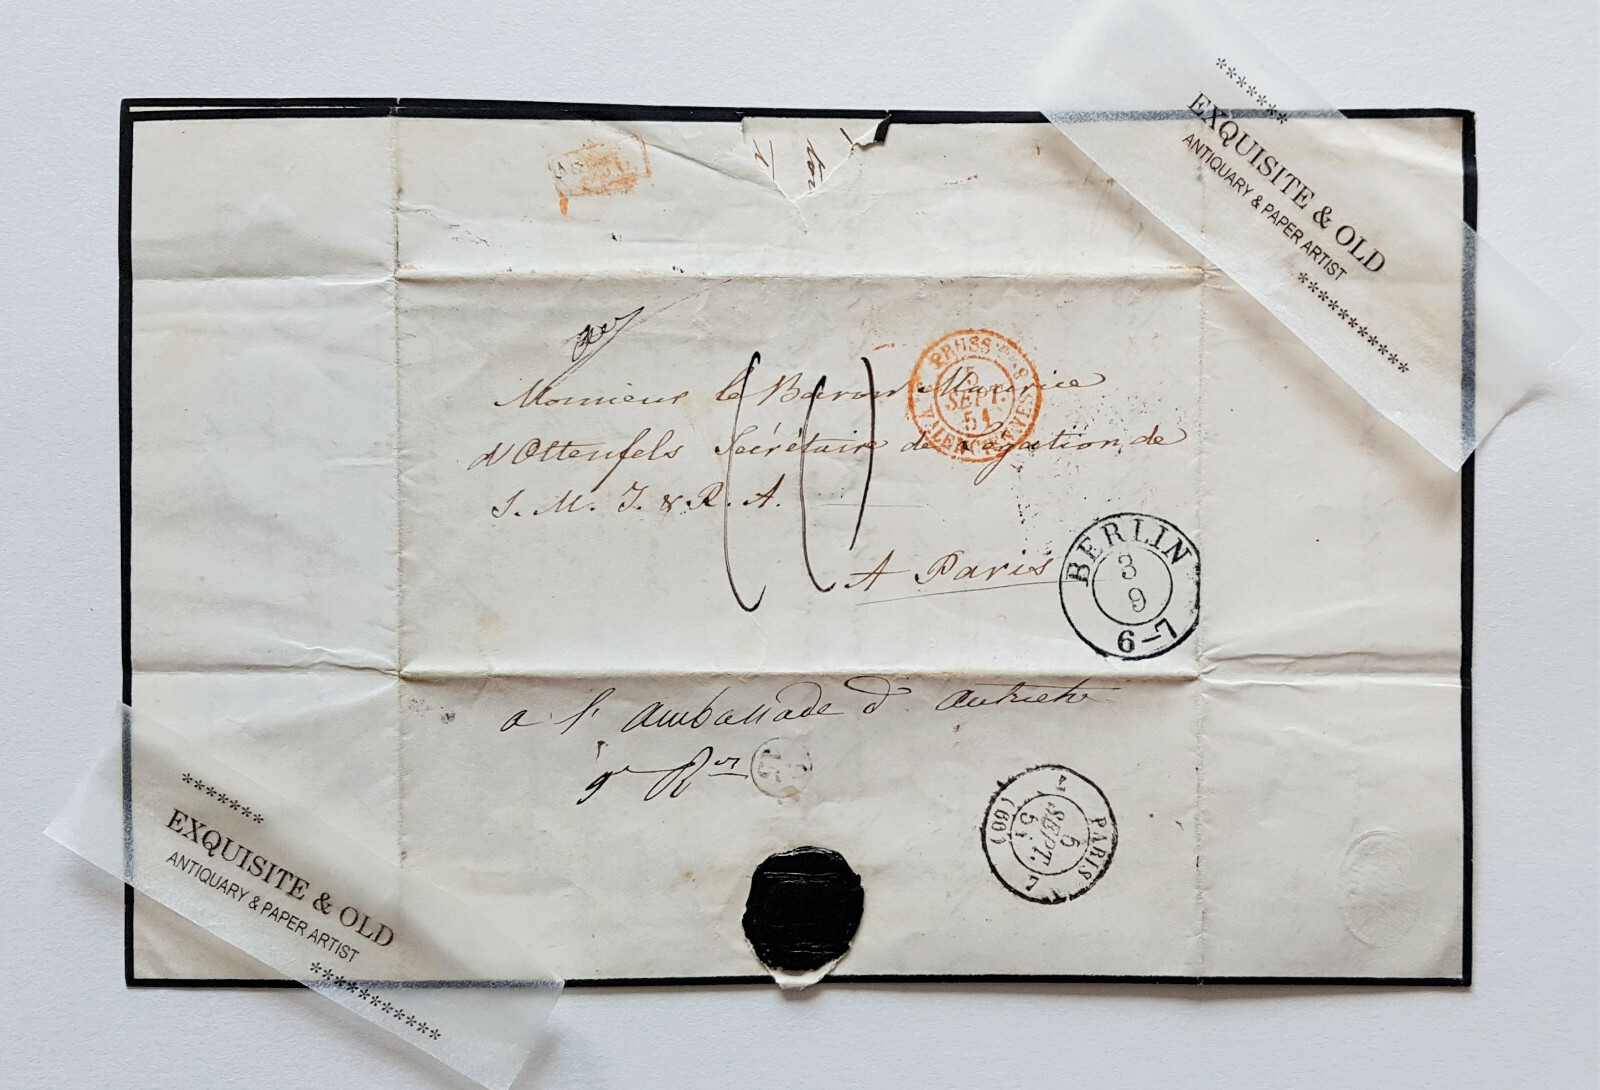 *******
EXQUISITE & OLD
ANTIQUARY & PAPER ARTIST
***********
Monsieur le Baron Maurice
d'Ottenfels Secrétaire de Légation de
S. M. I. & R. A.
A Paris
PRUSSE
5
SEPT.
51
VALENCIENNES
BERLIN
3
9
6-7
a l'ambassade d'autriche
PARIS
5
SEPT.
51
(60)
*******
EXQUISITE & OLD
ANTIQUARY & PAPER ARTIST
***********